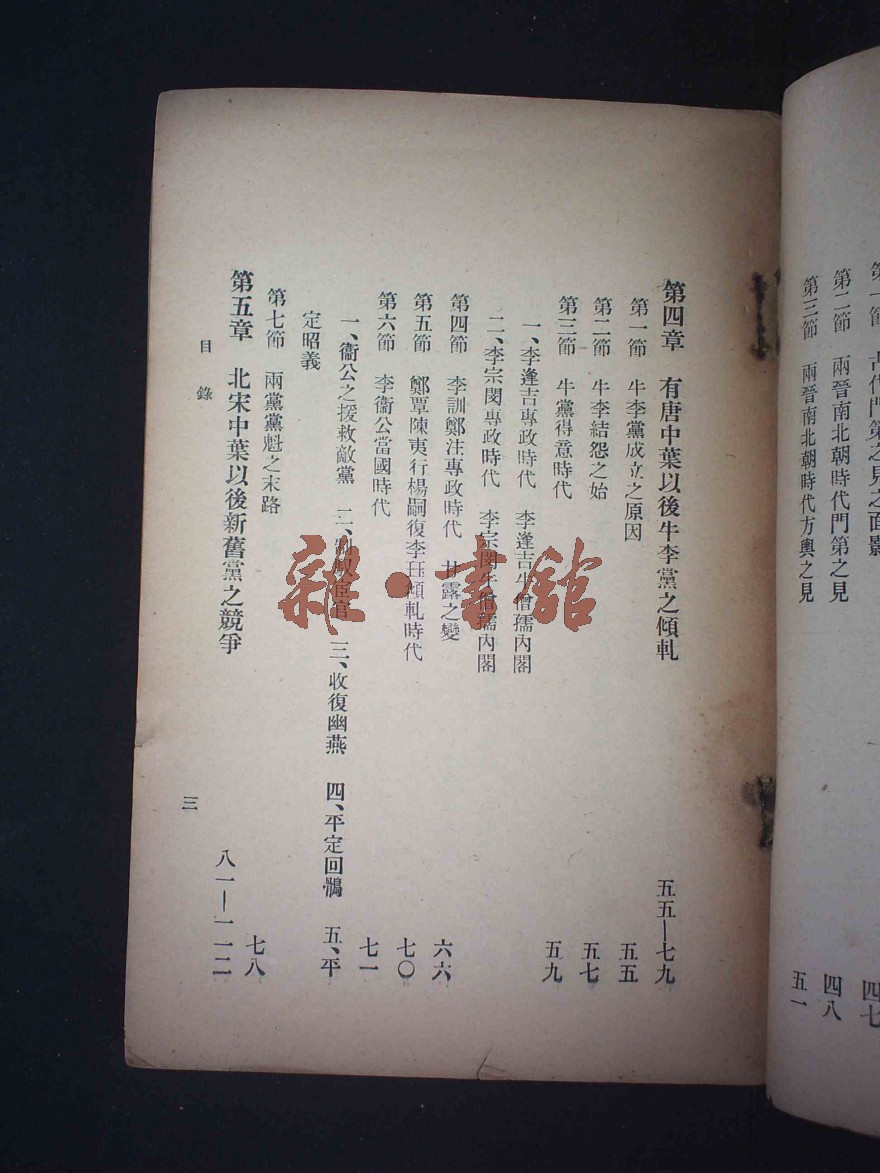 第一節　古代門第之見之面影　四七
第二節　兩晉南北朝時代門第之見　四八
第三節　兩晉南北朝時代方輿之見　五一
第四章　有唐中葉以後牛李黨之傾軋　五五—七九
第一節　牛李黨成立之原因　五五
第二節　牛李結怨之始　五七
第三節　牛黨得意時代　五九
一、李逢吉專政時代　李逢吉牛僧孺內閣
二、李宗閔專政時代　李宗閔牛僧孺內閣
第四節　李訓鄭注專政時代　甘露之變　六六
第五節　鄭覃陳夷行楊嗣復李珏傾軋時代　七〇
第六節　李衞公當國時代　七一
一、衞公之援救敵黨　二、制馭宦官　三、收復幽燕　四、平定回鶻　五、平
定昭義
第七節　兩黨黨魁之末路　七八
第五章　北宋中葉以後新舊黨之競爭　八一—一一二
目錄
三
雜·書館